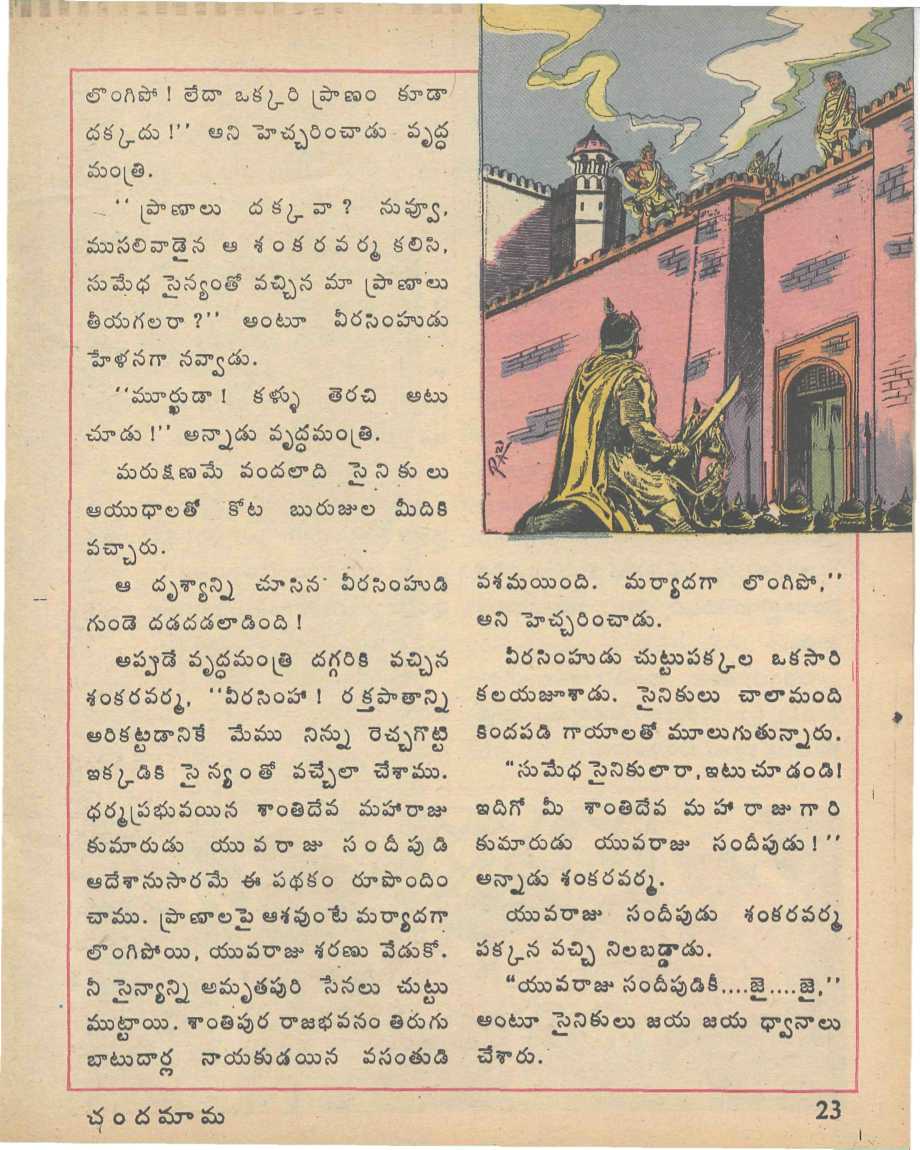 లొంగిపో! లేదా ఒక్కరి ప్రాణం కూడా
దక్కదు!'' అని హెచ్చరించాడు వృద్ధ
మంత్రి.
''ప్రాణాలు దక్కవా? నువ్వూ,
ముసలివాడైన ఆ శంకరవర్మ కలిసి,
సుమేధ సైన్యంతో వచ్చిన మా ప్రాణాలు
తీయగలరా?'' అంటూ వీరసింహుడు
హేళనగా నవ్వాడు.
''మూర్ఖుడా! కళ్ళు తెరచి అటు
చూడు!'' అన్నాడు వృద్ధమంత్రి.
మరుక్షణమే వందలాది సైనికులు
ఆయుధాలతో కోట బురుజుల మీదికి
వచ్చారు.
ఆ దృశ్యాన్ని చూసిన వీరసింహుడి
గుండె దడదడలాడింది!
అప్పుడే వృద్ధమంత్రి దగ్గరికి వచ్చిన
శంకరవర్మ, ''వీరసింహా! రక్తపాతాన్ని
అరికట్టడానికే మేము నిన్ను రెచ్చగొట్టి
ఇక్కడికి సైన్యంతో వచ్చేలా చేశాము.
ధర్మప్రభువయిన శాంతిదేవ మహారాజు
కుమారుడు యువరాజు సందీపుడి
ఆదేశానుసారమే ఈ పథకం రూపొందిం
చాము. ప్రాణాలపై ఆశవుంటే మర్యాదగా
లొంగిపోయి, యువరాజు శరణు వేడుకో.
నీ సైన్యాన్ని అమృతపురి సేనలు చుట్టు
ముట్టాయి. శాంతిపుర రాజభవనం తిరుగు
బాటుదార్ల నాయకుడయిన వసంతుడి
వశమయింది. మర్యాదగా లొంగిపో,''
అని హెచ్చరించాడు.
వీరసింహుడు చుట్టుపక్కల ఒకసారి
కలయజూశాడు. సైనికులు చాలామంది
కిందపడి గాయాలతో మూలుగుతున్నారు.
"సుమేధ సైనికులారా, ఇటు చూడండి!
ఇదిగో మీ శాంతిదేవ మహారాజుగారి
కుమారుడు యువరాజు సందీపుడు!''
అన్నాడు శంకరవర్మ.
యువరాజు సందీపుడు శంకరవర్మ
పక్కన వచ్చి నిలబడ్డాడు.
"యువరాజు సందీపుడికీ....జై....జై,''
అంటూ సైనికులు జయ జయ ధ్వానాలు
చేశారు.
చందమామ
23